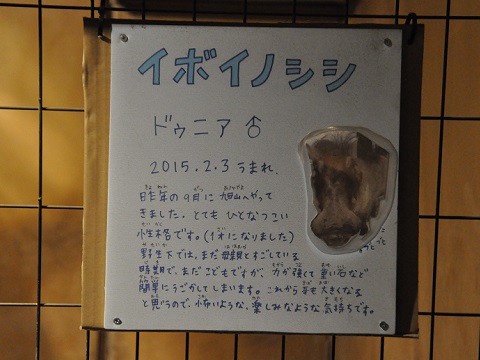 イボイノシシ
ドゥニア ♂
2015.2.3 うまれ.
昨年の9月に旭山へやって
きました. とても ひとなつこい
性格です。(1才になりました)
野生下では、まだ母親とすごしている
時期で、まだこどもですが、力が強くて重い石など
簡単にうごかしてしまいます。これから 大きくなる
と思うので、怖いような、楽しみなような、気持ちです。